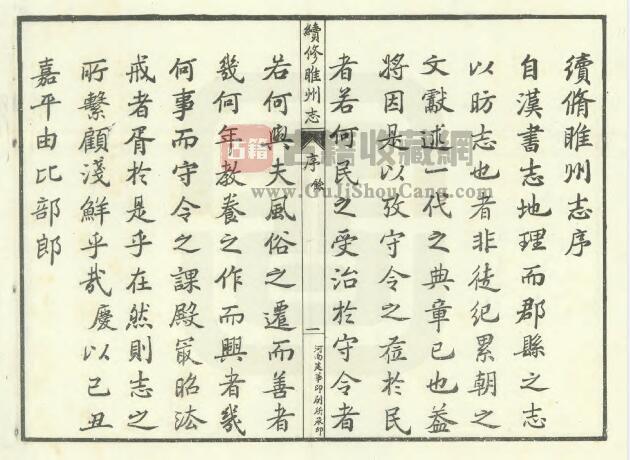 續脩睢州志序
自漢書志地理而郡縣之志
以昉志也者非徒紀累朝之
文獻述一代之典章已也葢
將因是以攷守令之蒞於民
者若何民之受治於守令者
續修睢州志
序
一
河南建華印刷所承印
若何與夫風俗之遷而善者
幾何年教養之作而興者幾
何事而守令之課殿最昭法
戒者胥於是乎在然則志之
所繫顧淺鮮乎哉慶以己丑
嘉平由比部郎
古籍
古籍收藏網
www.GuJiShouCang.com